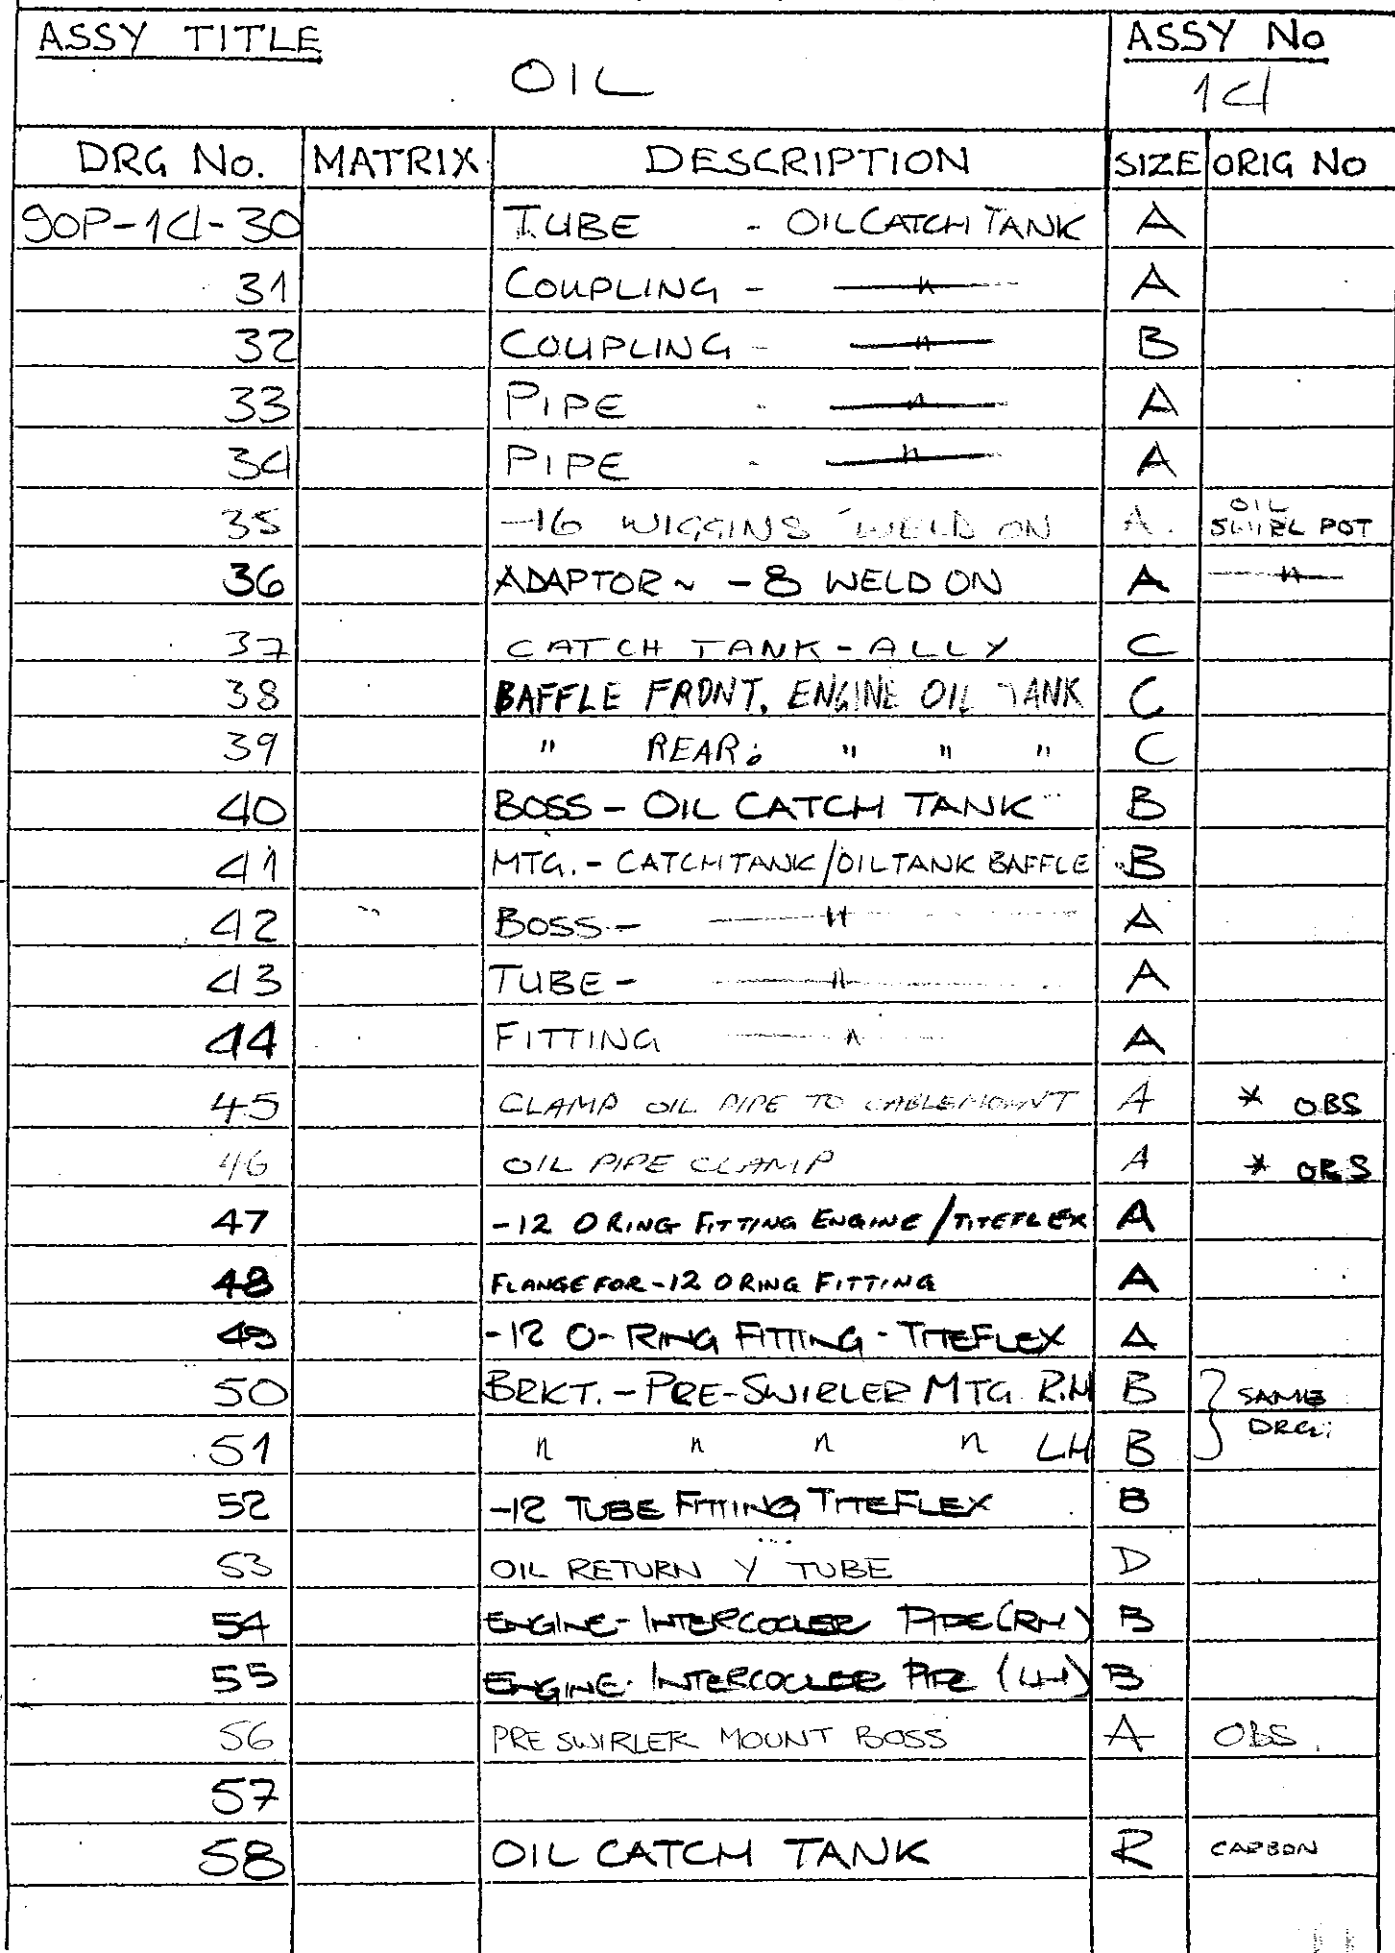 ASSY TITLE ASSY No
OIL 14
DRG No. MATRIX DESCRIPTION SIZE ORIG No
90P-14-30 TUBE - OIL CATCH TANK A
31 COUPLING - " A
32 COUPLING - " B
33 PIPE - " A
34 PIPE - " A
35 -16 WIGGINS WELD ON A. OIL SWIRL POT
36 ADAPTOR ~ -8 WELD ON A "
37 CATCH TANK - ALLY C
38 BAFFLE FRONT. ENGINE OIL TANK C
39 " REAR: " " " C
40 BOSS - OIL CATCH TANK B
41 MTG. - CATCHTANK/OILTANK BAFFLE B
42 BOSS - " A
43 TUBE - " A
44 FITTING " A
45 CLAMP OIL PIPE TO CABLEMOUNT A * OBS
46 OIL PIPE CLAMP A * OBS
47 -12 O RING FITTING ENGINE/TITEFLEX A
48 FLANGE FOR -12 O RING FITTING A
49 -12 O-RING FITTING - TITEFLEX A
50 BRKT. - PRE-SWIRLER MTG R.H B } SAME
51 " " " " LH B } DRG.
52 -12 TUBE FITTING TITEFLEX B
53 OIL RETURN Y TUBE D
54 ENGINE - INTERCOOLER PIPE (RH) B
55 ENGINE - INTERCOOLER PIPE (LH) B
56 PRE SWIRLER MOUNT BOSS A OBS.
57
58 OIL CATCH TANK R CARBON